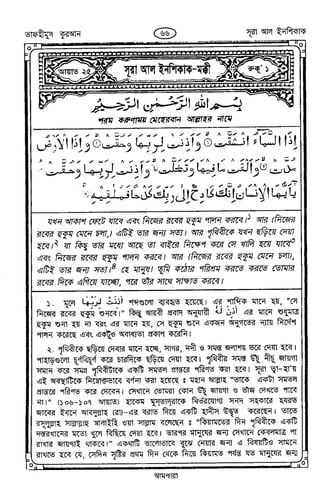 তাফহীমুল কুরআন ৬৬ সূরা আল ইনশিকাক
আয়াত ২৫ সূরা আল ইনশিকাক-মক্কী রুকূ' ১
بِسْمِ اللّٰهِ الرَّحْمٰنِ الرَّحِيْمِ
পরম করুণাময় মেহেরবান আল্লাহর নামে
اِذَا السَّمَآءُ انْشَقَّتْ وَاَذِنَتْ لِرَبِّهَا وَحُقَّتْ وَاِذَا الْاَرْضُ
مُدَّتْ وَاَلْقَتْ مَا فِيْهَا وَتَخَلَّتْ وَاَذِنَتْ لِرَبِّهَا وَحُقَّتْ
يٰۤاَيُّهَا الْاِنْسَانُ اِنَّكَ كَادِحٌ اِلٰى رَبِّكَ كَدْحًا فَمُلٰقِيْهِ
যখন আকাশ ফেটে যাবে এবং নিজের রবের হুকুম পালন করবে।১ আর (নিজের
রবের হুকুম মেনে চলা,) এটিই তার জন্য সত্য। আর পৃথিবীকে যখন ছড়িয়ে দেয়া
হবে।২ যা কিছু তার মধ্যে আছে তা বাইরে নিক্ষেপ করে সে খালি হয়ে যাবে৩
এবং নিজের রবের হুকুম পালন করবে। আর (নিজের রবের হুকুম মেনে চলা),
এটিই তার জন্য সত্য।৪ হে মানুষ! তুমি কঠোর পরিশ্রম করতে করতে তোমার
রবের দিকে এগিয়ে যাচ্ছো, পরে তাঁর সাথে সাক্ষাত করবে।
১. মূলে اَذِنَتْ لِرَبِّهَا শব্দগুলো ব্যবহৃত হয়েছে। এর শাব্দিক মানে হয়, "সে
নিজের রবের হুকুম শুনবে।" কিন্তু আরবী প্রবাদ অনুযায়ী اَذِنَ لَهٗ এর মানে শুধুমাত্র
হুকুম শুনা হয় না বরং এর মানে হয়, সে হুকুম শুনে একজন অনুগতের ন্যায় নির্দেশ
পালন করেছে এবং একটুও অবাধ্যতা প্রকাশ করেনি।
২. পৃথিবীকে ছড়িয়ে দেবার মানে হচ্ছে, সাগর, নদী ও সমস্ত জলাশয় ভরে দেয়া হবে।
পাহাড়গুলো চূর্ণবিচূর্ণ করে চারদিকে ছড়িয়ে দেয়া হবে। পৃথিবীর সমস্ত উঁচু নীচু জায়গা
সমান করে সমগ্র পৃথিবীটাকে একটি সমতল প্রান্তরে পরিণত করা হবে। সূরা ত্বা-হা'য়
এই অবস্থাটিকে নিম্নোক্তভাবে বর্ণনা করা হয়েছে : মহান আল্লাহ "তাকে একটা সমতল
প্রান্তরে পরিণত করে দেবেন। সেখানে তোমরা কোন উঁচু জায়গা ও ভাঁজ দেখতে পাবে
না।" (১০৬-১০৭ আয়াত) হাকেম মুস্তাদরাকে নির্ভরযোগ্য সনদ সহকারে হযরত
জাবের ইবনে আবদুল্লাহ (রা)-এর বরাত দিয়ে একটি হাদীস উদ্ধৃত করেছেন। তাতে
রসূলুল্লাহ সাল্লাল্লাহু আলাইহি ওয়া সাল্লাম বলেছেন : "কিয়ামতের দিন পৃথিবীকে একটি
দস্তরখানের মতো খুলে বিছিয়ে দেয়া হবে। তারপর মানুষের জন্য সেখানে কেবলমাত্র পা
রাখার জায়গাই থাকবে।" একথাটি ভালোভাবে বুঝে নেয়ার জন্য এ বিষয়টিও সামনে
রাখতে হবে যে, সেদিন সৃষ্টির প্রথম দিন থেকে নিয়ে কিয়ামত পর্যন্ত যত মানুষের জন্ম
আমপারা